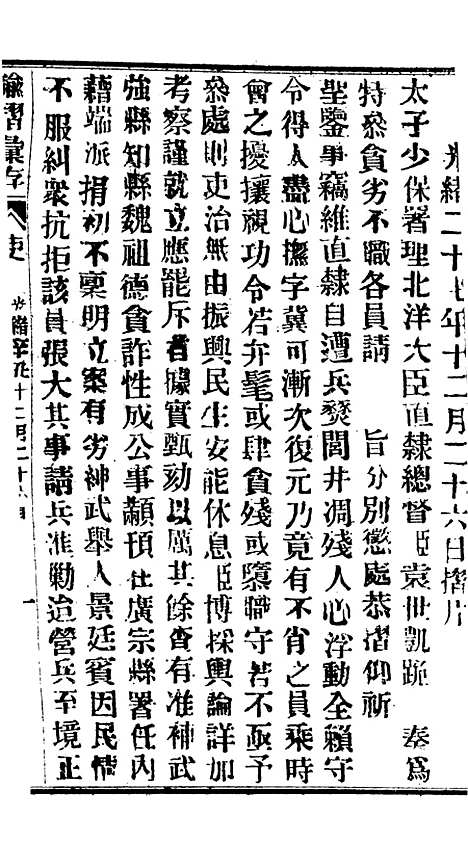 光緒二十七年十二月二十六日摺片
太子少保署理北洋大臣直隸總督臣袁世凱跪　奏爲
特叅貪劣不職各員請　旨分別懲處恭摺仰祈
聖鑒事竊維直隸自遭兵燹閭井凋殘人心浮動全賴守
令得人盡心撫字冀可漸次復元乃竟有不肖之員乘時
會之擾攘視功令若弁髦或肆貪殘或隳職守若不亟予
叅處則吏治無由振興民生安能休息臣博採輿論詳加
考察謹就立應罷斥者據實甄劾以厲其餘查有准補武
強縣知縣魏祖德貪詐性成公事顢頇在廣宗縣署任內
藉端派捐初不稟明立案有劣紳武舉人景廷賓因民情
不服糾衆抗拒該員張大其事請兵准勦迨營兵至境正
諭摺彙存　吏　光緒辛丑十二月二十六日　一